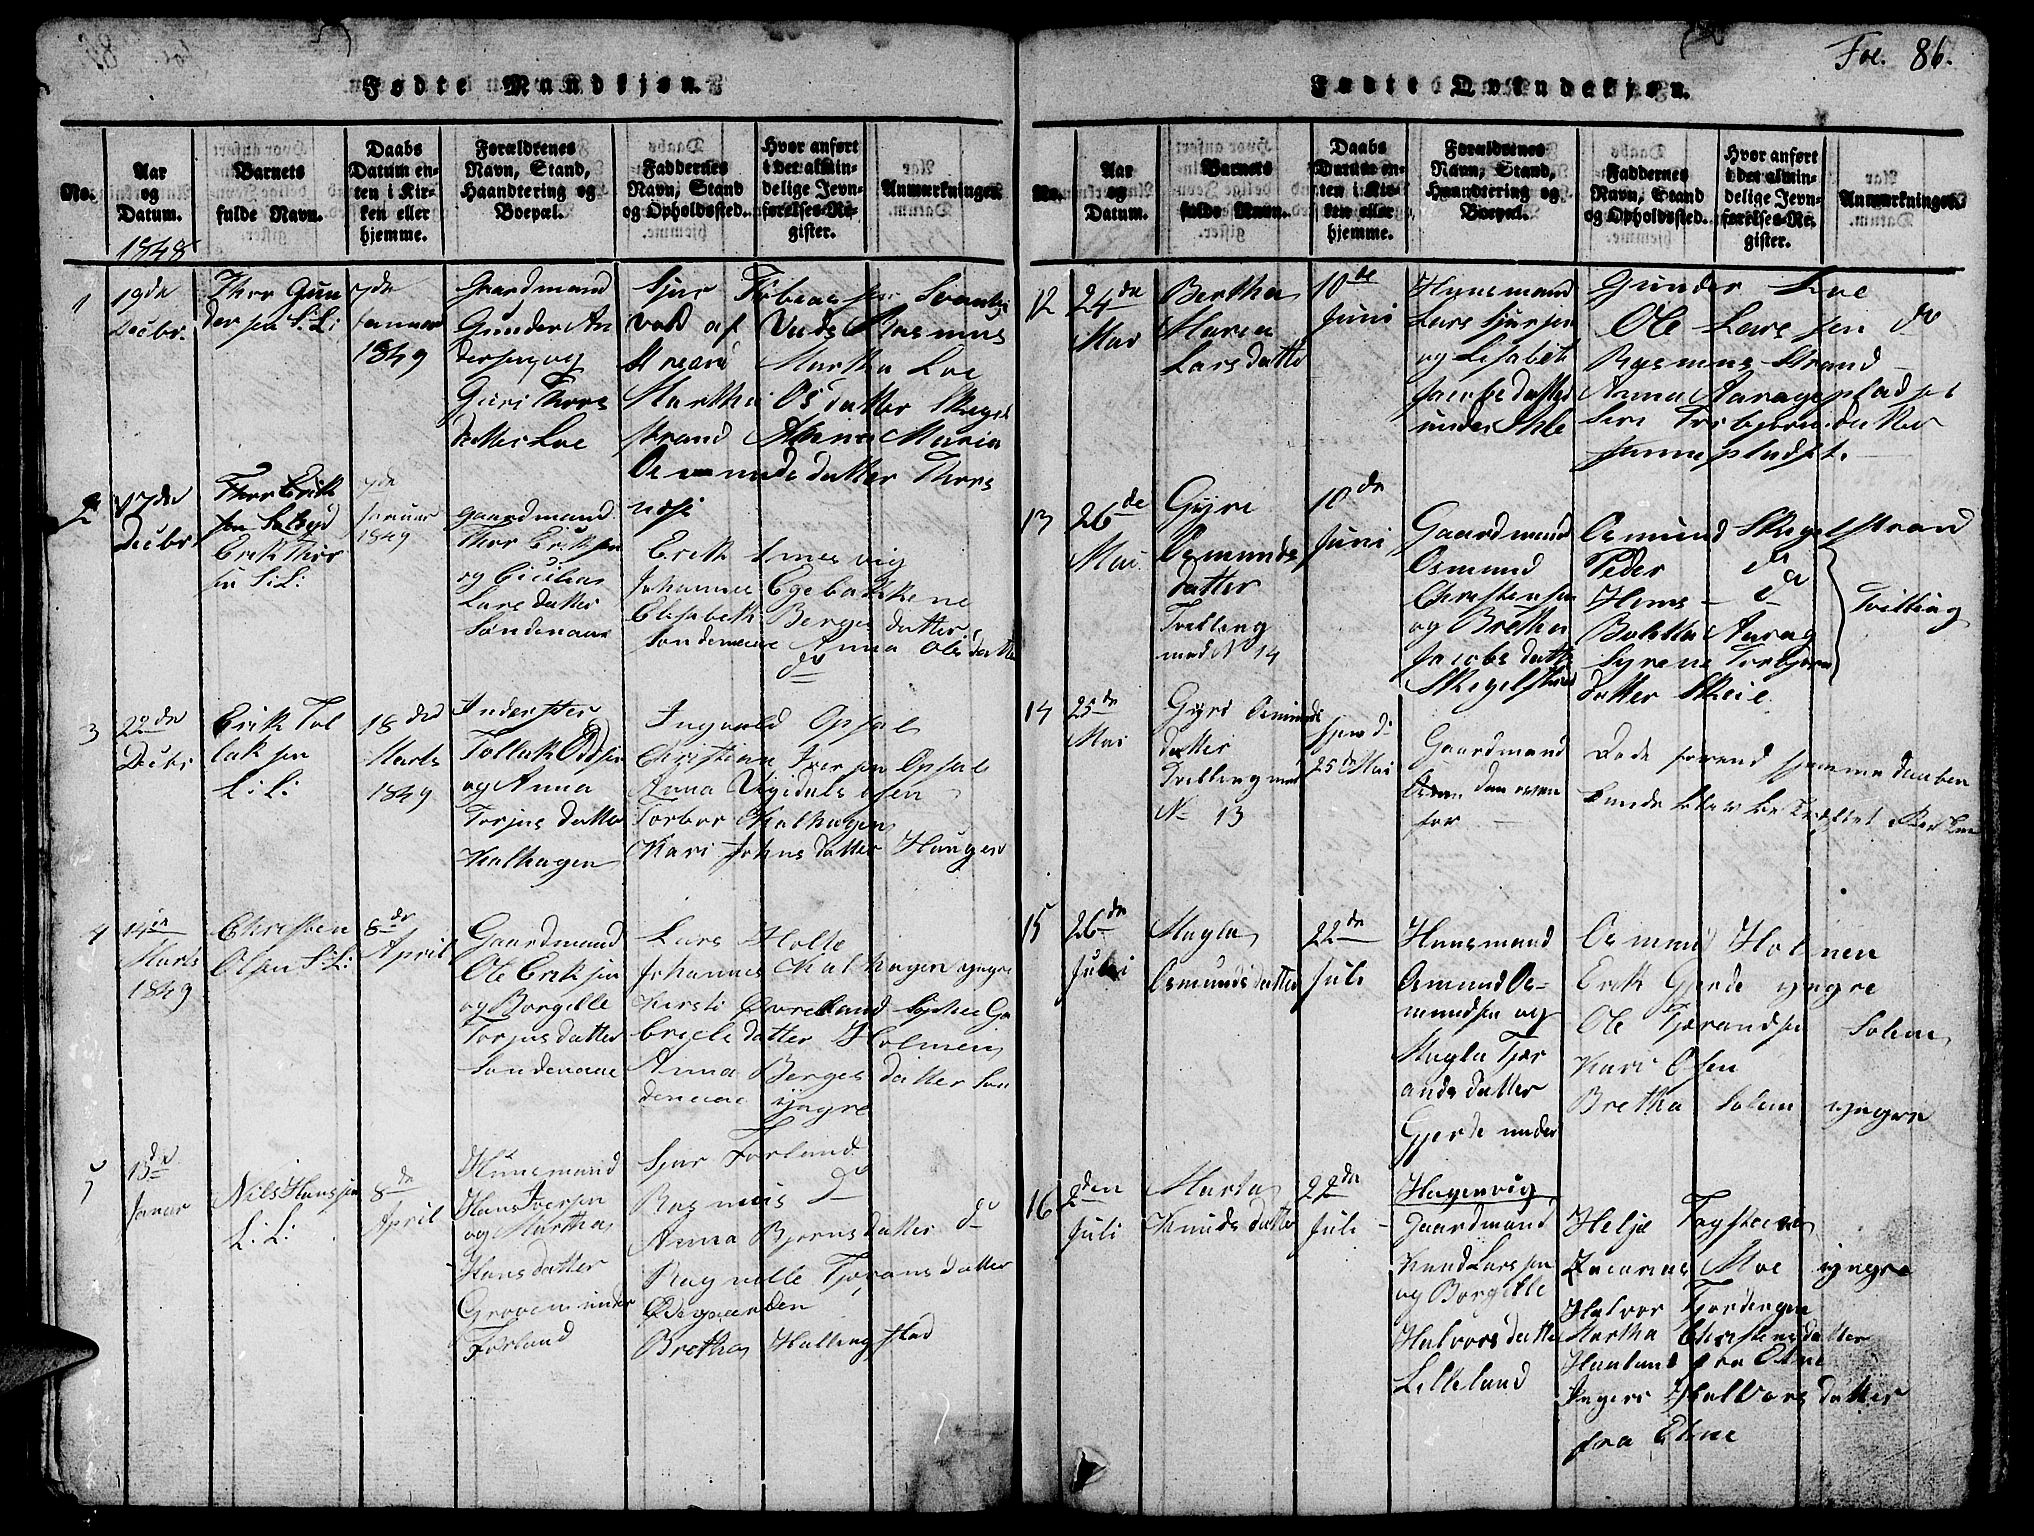 Fødte Mandkjøn.
No.
Aar og Datum.
Barnets fulde Navn.
Daabs Datum enten i Kirken eller hjemme.
Forældrenes Navn, Stand, Haandtering og Boepæl.
Faddernes Navn, Stand og Opholdssted.
Hvor anført i det almindelige Jevnførelses-Register.
Anmærkninger.
1848
1
19de
Decbr.
Thor Gun
dersen S.L:
7de
Januar
1849
Gaardmand
Gunder An
dersen og
Guri Thors
datter Loe
Sjur Tobiassen
vold af Rasmus
Martha Loe
Martha Osdatter
strand Anna Maria
Osmundsdatter Thors
næs
2
17de
Decbr
Thor Erik
sen
Erik Thor
sen S:L:
7de
Januar
1849
gaardmand
Thor Eriksen
og Cicilia
Lars datter
Søndenaae
Erik Imesvig
Johannes Egebakkene
Elisabeth Berges datter
Søndenaae Anna Olsdatter
do
3
22de
Decbr
Erik Tol
laksen
L:L:
18de
Marts
1849
Inderster
Tollak Oddsen
og Anna
Torjus datter
Kalhagen
Ingvald Opsal
Christian Iversen Opsal
Anna
Torbor Kalhagen
Kari Johns datter Haugen
4
14de
Marts
1849
Christen
Olsen S:L:
8de
April
Gaardmand
Ole Eriksen
og Borgille
Torjusdatter
Søndenaae
Lars Holte
Johannes Kalhagen yngre
Kirsti Qvæland Sophie Ga
briels datter Holmen
Anna Berges datter Søn
denaae yngre
5
13de
Januar
Nils Hansen
L:L:
8de
April
Huusmand
Hans Iversen
og Martha
Hansdatter
Groven under
Førland
Sjur Førland
Rasmus do
Anna Bjørnsdatter do
Ragnille Tjørans datter
Ødegaarden
Bretha Hallingstad
Foe. 86.
Fødte Qvindekjøn.
No.
Aar og Datum.
Barnets fulde Navn.
Daabs Datum enten i Kirken eller hjemme.
Forældrenes Navn, Stand, Haandtering og Boepæl.
Faddernes Navn, Stand og Opholdssted.
Hvor anført i det almindelige Jevnførelses-Register.
Anmærkninger.
12
24de
Mai
Bertha
Maria
Larsdatter
10de
Juni
Huusmand
Lars Sjursen
og Lisabet
Jacobs datter
under
Gunder Loe
Ole Larssen do
Rasmus Strand
Anna Aaragepladset
Siri Torbjørnsdatter
pladset.
13
26de
Mai
Gyri
Osmunds
datter
Tvilling
med N 14
10de
Juni
Gaardmand
Osmund
Christensen
og Bretha
Jacobs datter
Skigelstrand
Osmund Skigelstrand
Peder do
Hans do
Bertha Aarag
Syrene Torbjørns
datter Skeie
Tvilling
14
25de
Mai
Gyri Osmunds
datter
Tvilling med
No 13
hjemd:
25de Mai
Gaardmand
den oven
for
Døde forend hjemmedaaben
kunde blev bekræftet
15
26de
Juli
Magla
Osmunds datter
22de
Juli
Huusmand
Osmund Os-
mundsen og
Magla Tjør
ands datter
Gjerde under
Hagenvig
Osmund Holmen
Erik Gjerde yngre
Ole Tjærandsen Solem
Kari Olsen
Bretha Solem yngre
16
2den
Juli
Marta
Knuds datter
22de
Juli
Gaardmand
Knud Larssen
og Borgille
Halvorsdatter
Lilleland
Helje Tøgsteen
Zacarias Moe yngre
Halvor Tjordungen
Martha Christensdatter
Hauland fra Etne
Ingeri Halvors datter
fra Etne